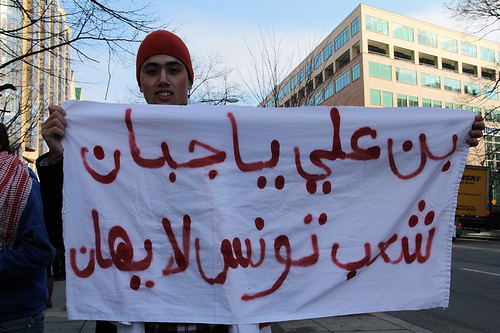 بن علي يا جبان
شعب تونس لا يهان